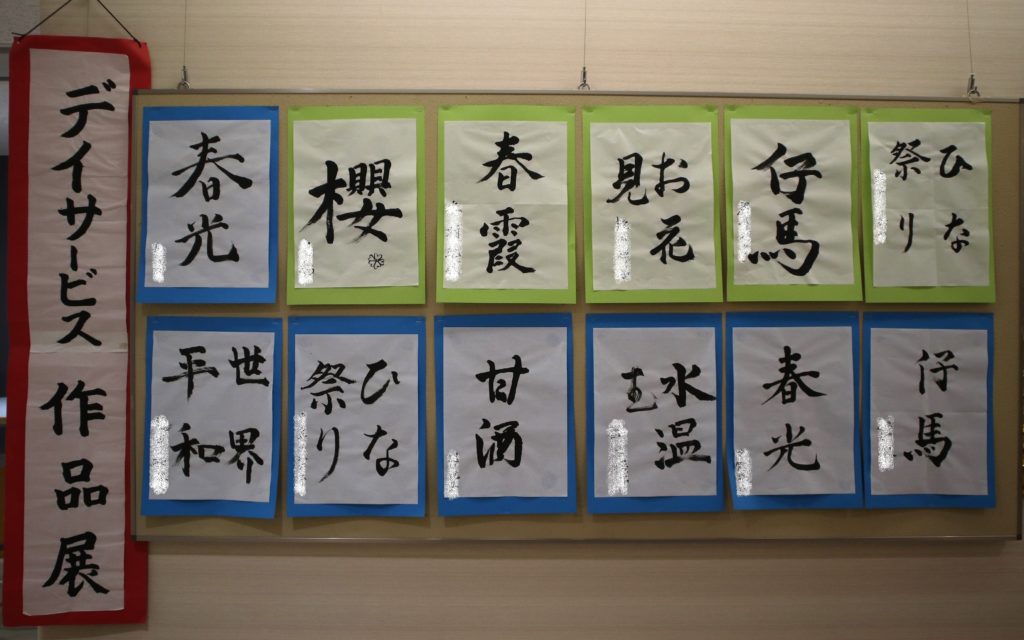 デイサービス 作品展
春光
櫻
春霞
お花
見
仔馬
ひな
祭り
世界
平和
ひな
祭り
甘酒
水温
む
春光
仔馬